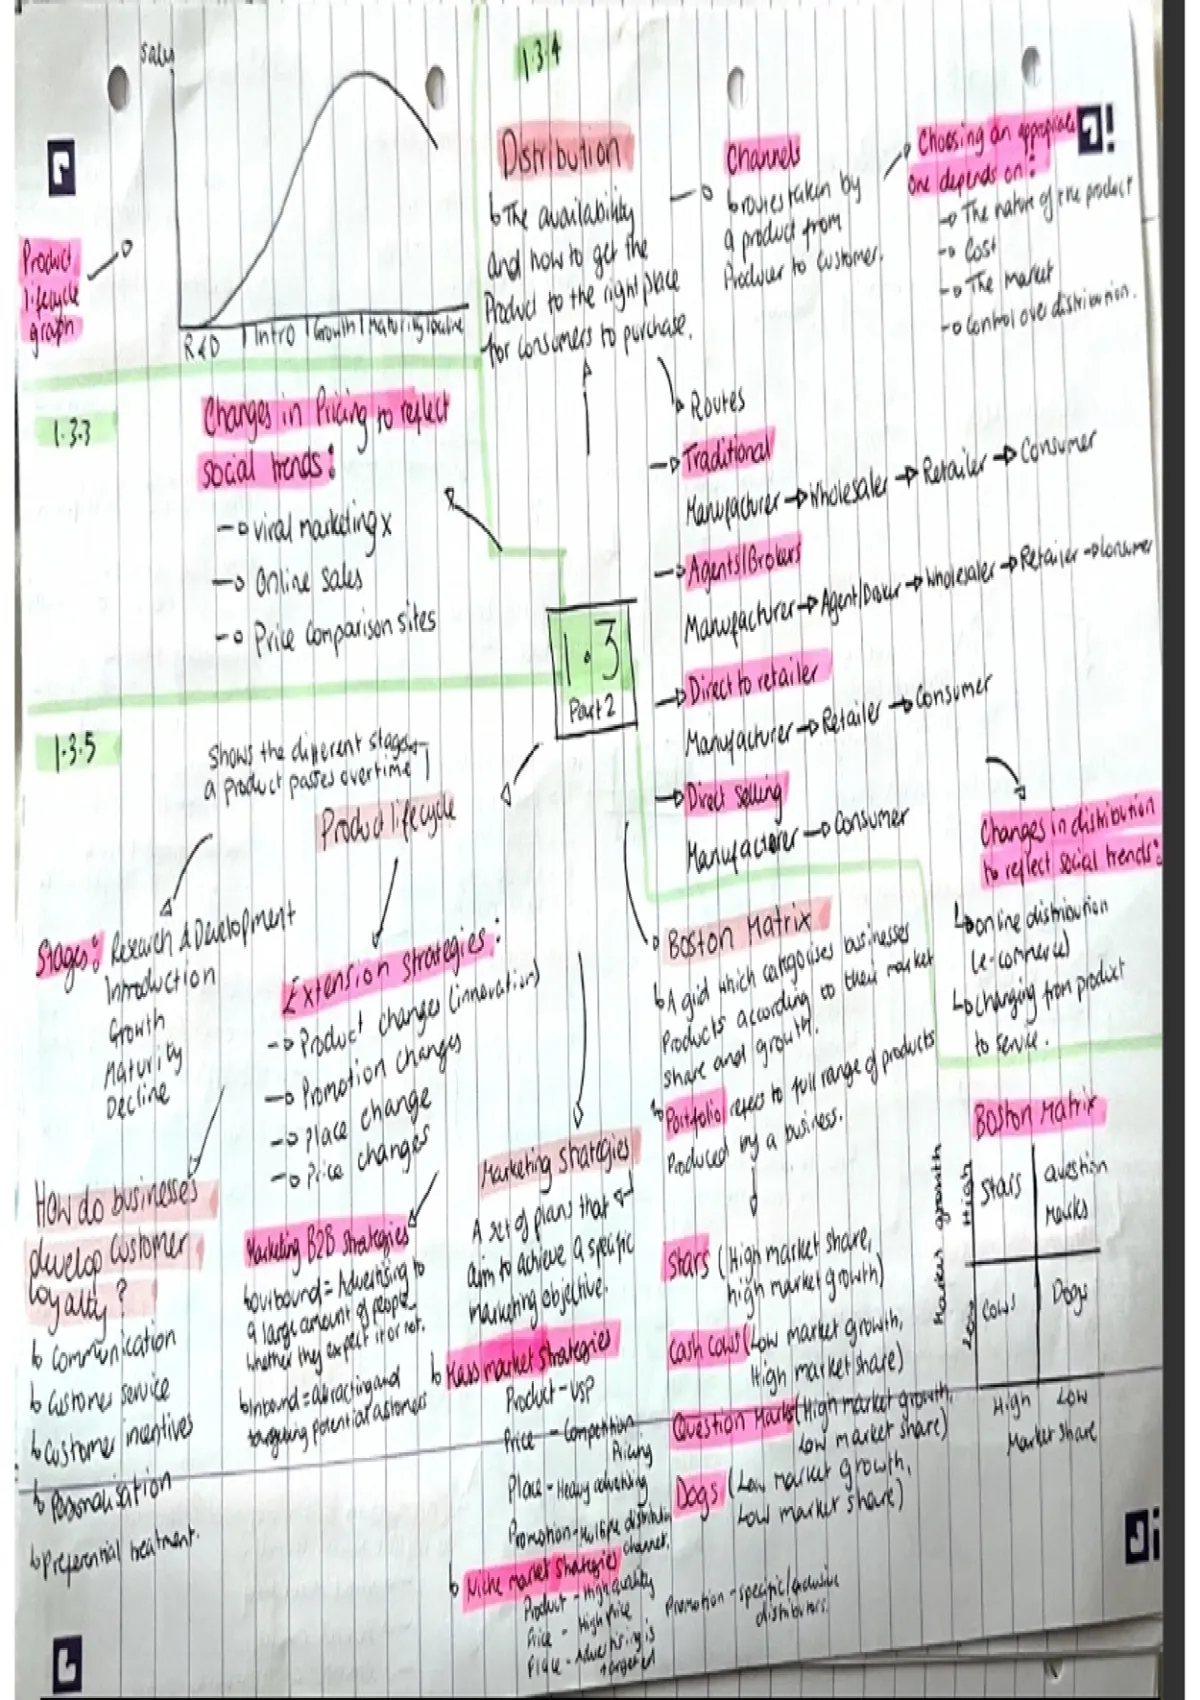 Sales
R&D | Intro | Growth | Maturity | Decline
Product
lifecycle
graph
1.3.4
Distribution
The availability
and how to get the
Product to the right place
for consumers to purchase.
Channels
routes taken by
a product from
Producer to customer.
Choosing an appropriate
one depends on:
The nature of the product
Cost
The market
Control over distribution.
1.3.3
Changes in Pricing to reflect
social trends:
viral marketing x
Online sales
Price comparison sites
Routes
Traditional
Manufacturer → Wholesaler → Retailer → Consumer
Agents/Brokers
Manufacturer → Agent/ → Wholesaler → Retailer → Consumer
Direct to retailer
Manufacturer → Retailer → Consumer
Direct selling
Manufacturer → Consumer
1.3
Part 2
Changes in distribution
to reflect social trends:
online distribution
(e-commerce)
Changing from product
to service.
1.3.5
Shows the different stages
a product passes overtime
Product lifecycle
Stages: Research & Development
Introduction
Growth
Maturity
Decline
Extension strategies:
Product changes (innovation)
Promotion changes
Place change
Price changes
How do businesses
develop customer
loyalty?
Communication
Customer service
Customer incentives
Personalisation
Preferential treatment.
Marketing B2B strategies
Outbound = Advertising to
a large amount of people
whether they expect it or not.
Inbound = attracting and
targeting potential customers
Marketing strategies
A set of plans that
aim to achieve a specific
marketing objective.
Mass market strategies
Product - USP
Price - Competition
Pricing
Place - Heavy advertising
Promotion - Multiple distribution
channel.
Niche market strategies
Product - High quality
Price - High price
Place - Advertising is
targeted
Promotion - specific/exclusive
distributors.
Boston Matrix
A grid which categorises businesses
Products according to their market
share and growth.
Portfolio refers to full range of products
Produced by a business.
Stars (High market share,
high market growth)
Cash cows (Low market growth,
High market share)
Question Marks (High market growth,
Low market share)
Dogs (Low market growth,
Low market share)
Boston Matrix
Market growth
High
Low
Stars
question
Marks
Cows
Dogs
High Low
Market share